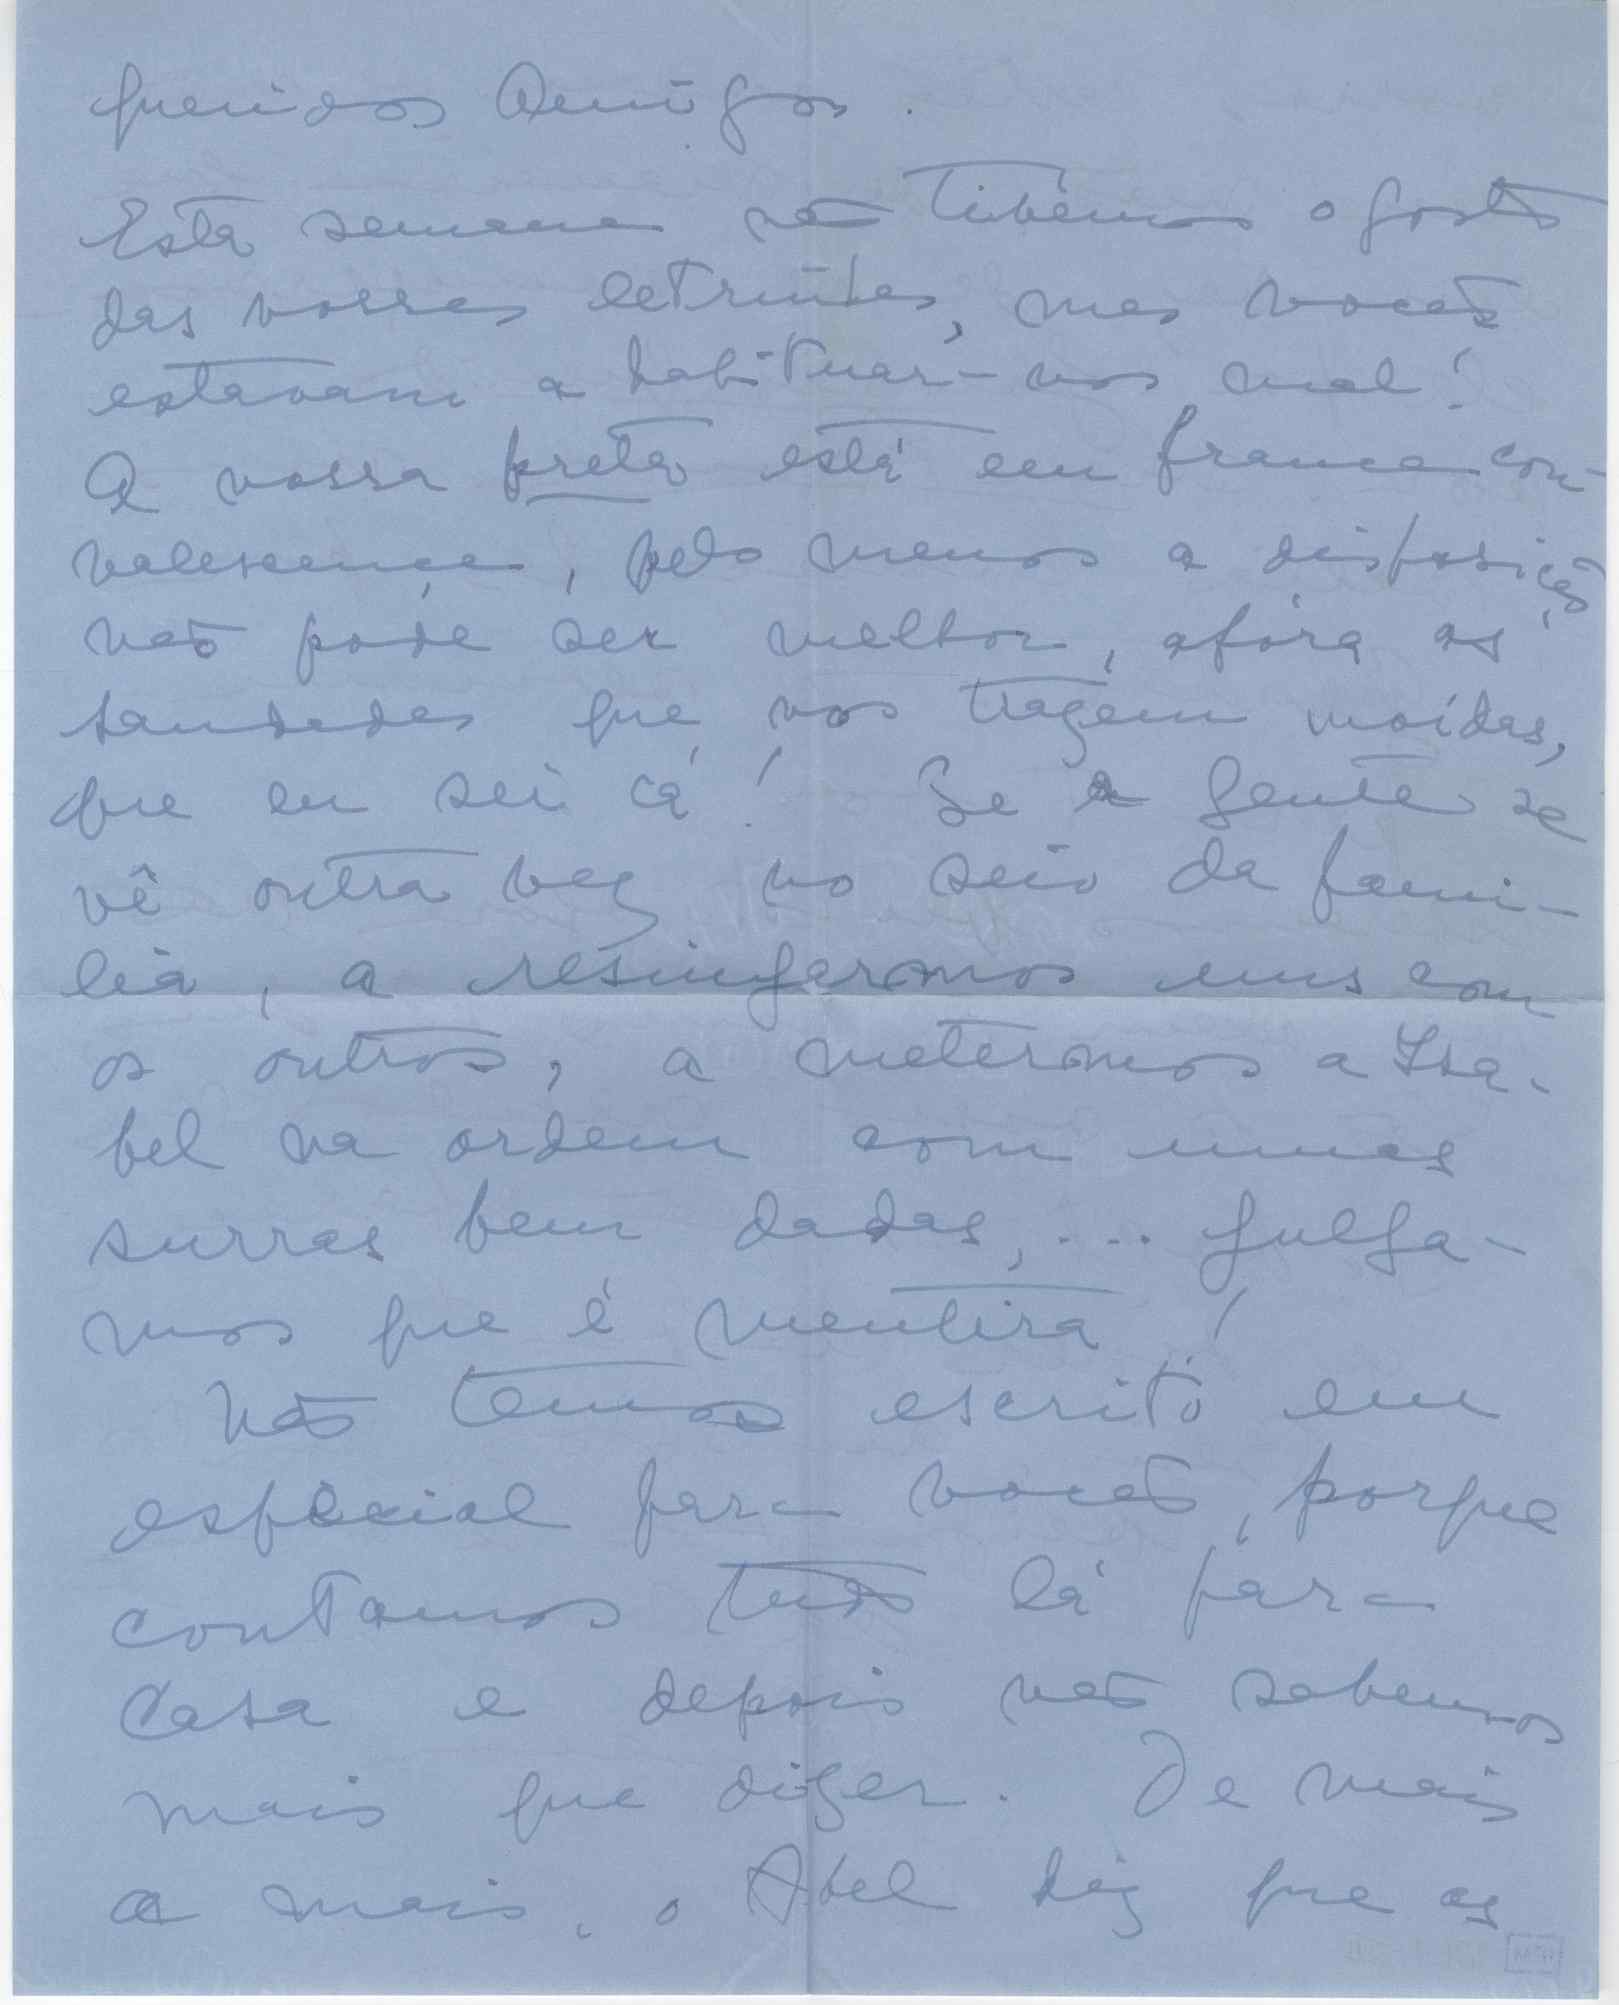 Queridos Amigos.
Esta semana não tibemos o gosto
das vossas letrinhas, mas vocês
estavam a habituar-nos mal!
A vossa preta está em franca con-
valescença, pelo menos a disposição
não pode ser melhor, afóra as
saudades que nos tragem moídas,
que eu sei cá! Se a gente se
vê outra vez no seio da fami-
lia, a resingarmos uns com
os outros, a metermos a Isa-
bel na ordem com umas
surras bem dadas, .... julga-
mos que é mentira!
Não temos escrito em
especial para vocês, porque
contamos tudo lá para
Casa e depois não sabemos
mais que dizer. De mais
a mais, o Abel diz que as